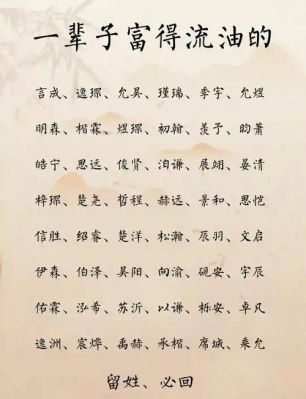 一辈子富得流油的
言成、逸琛、允昊、瑾瑞、季宇、允煜
明森、楷霖、煜琛、初翰、羡予、昀萧
皓宁、思远、俊贤、洎谦、展翊、晏清
梓琛、楚尧、哲程、赫远、景和、思恺
信胜、绍睿、楚洋、松瀚、辰羽、文启
伊森、伯泽、昊阳、向渝、砚安、宇辰
佑霖、泓希、苏沂、以谦、栎安、卓凡
逸洲、宸烨、禹赫、承楷、席城、乘允
留姓、必回